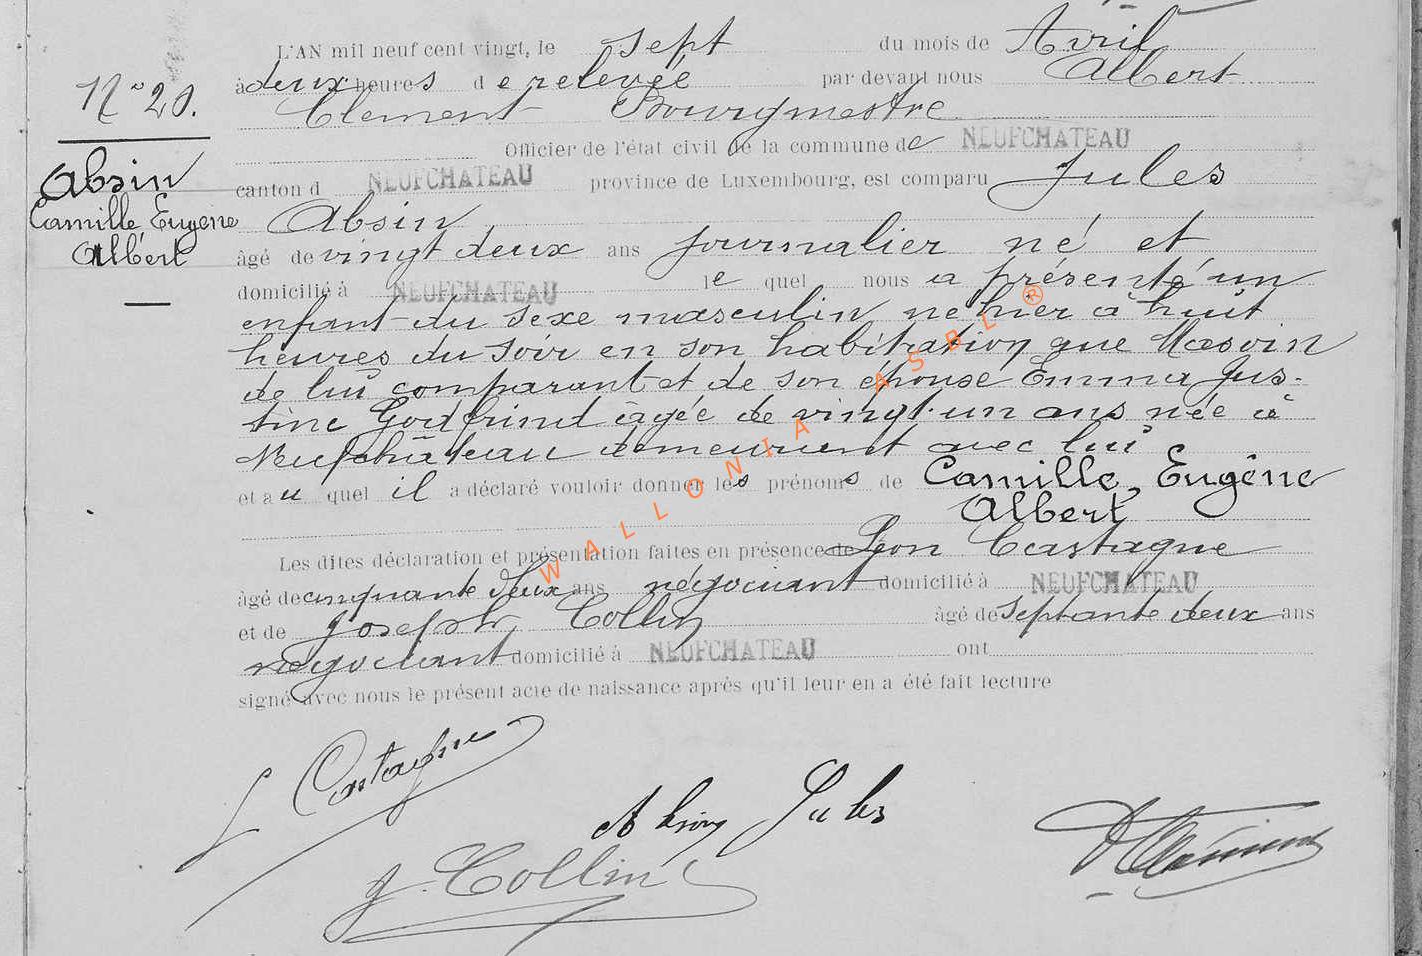 L'AN mil neuf cent vingt, le sept du mois de Avril
à deux heures de relevée par devant nous Albert
Clement Bourgmestre
Officier de l'état civil de la commune de NEUFCHATEAU
canton d NEUFCHATEAU province de Luxembourg, est comparu Jules
Absin
âgé de vingt deux ans journalier né et
domicilié à NEUFCHATEAU le quel nous a présenté un
enfant du sexe masculin né hier à huit
heures du soir en son habitation que
de lui comparant et de son épouse Emma Jus-
tine Godfrind âgée de vingt-un ans née à
Neufchâteau demeurant avec lui
et au quel il a déclaré vouloir donner les prénoms de Camille, Eugène
Albert
Les dites déclaration et présentation faites en présence de Léon Castagne
âgé de cinquante deux ans négociant domicilié à NEUFCHATEAU
et de Joseph Collin âgé de septante deux ans
négociant domicilié à NEUFCHATEAU ont
signé avec nous le présent acte de naissance après qu'il leur en a été fait lecture
N° 20.
Absin
Camille Eugène
Albert
L Castagne
Absin Jules
J. Collin
A Clément
WALLONIA ASBL ®